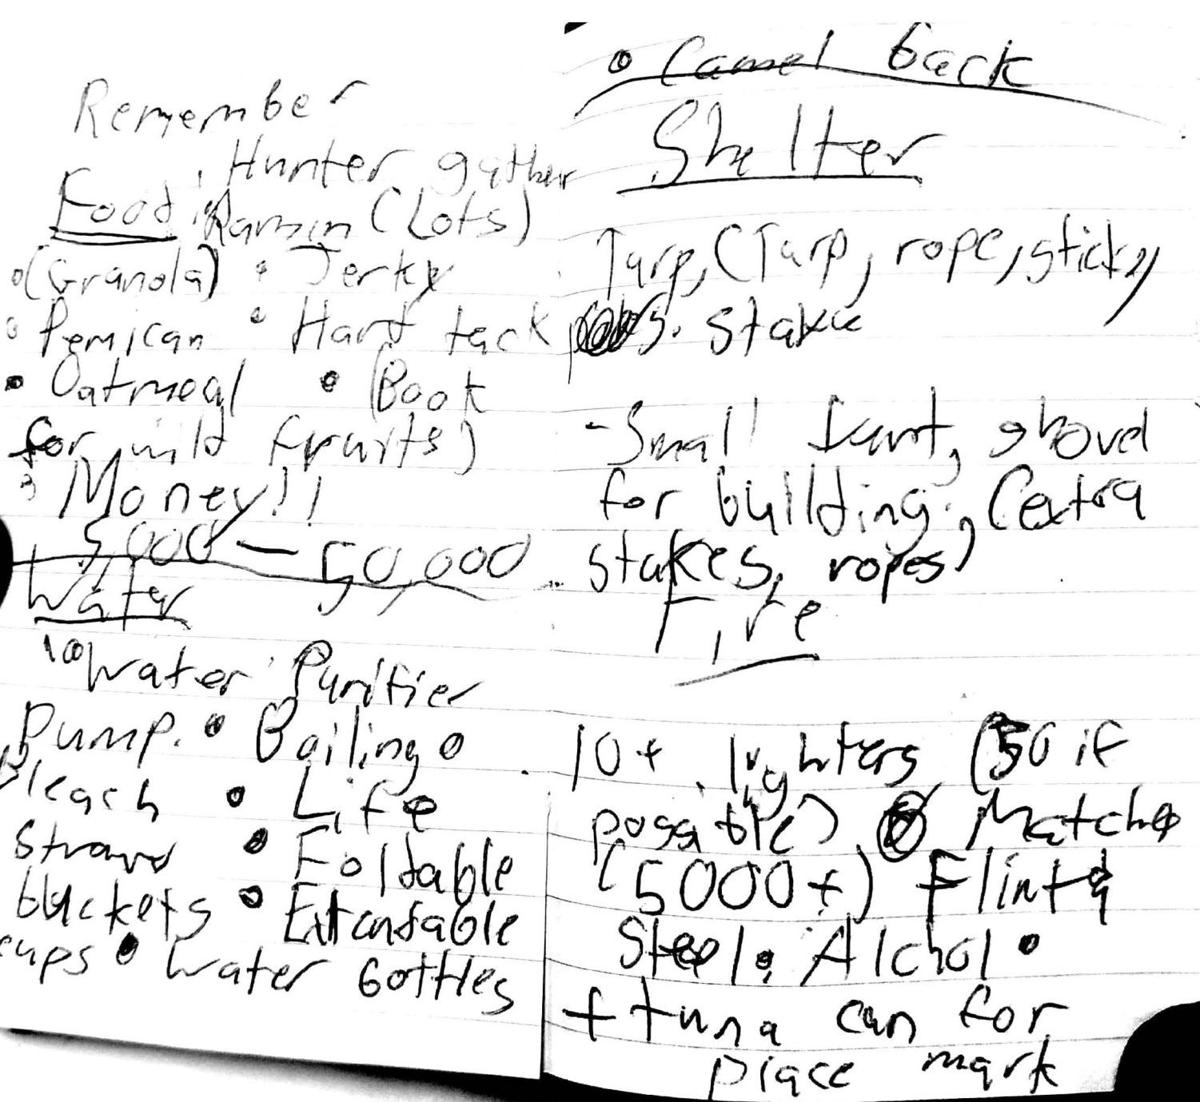 Remember
Hunter gather
Food • Ramin (Lots)
• (Granola) • Jerky
• Pemican • Hard tack
• Oatmeal • (Book
for wild fruits)
Money!!
5,000 — 50,000
Water
• Water Purifier
Pump. • Boiling •
Bleach • Life
Straw • Foldable
buckets • Extendable
cups • Water bottles
• Camel back
Shelter
Tarp, (Tarp, rope, sticks,
stake
- Small shovel
for building, (extra
stakes, ropes)
Fire
10+ lighters (50 if
possible) Matches
(5000+) Flint &
Steel • Alchol •
+ tuna can for
place mark